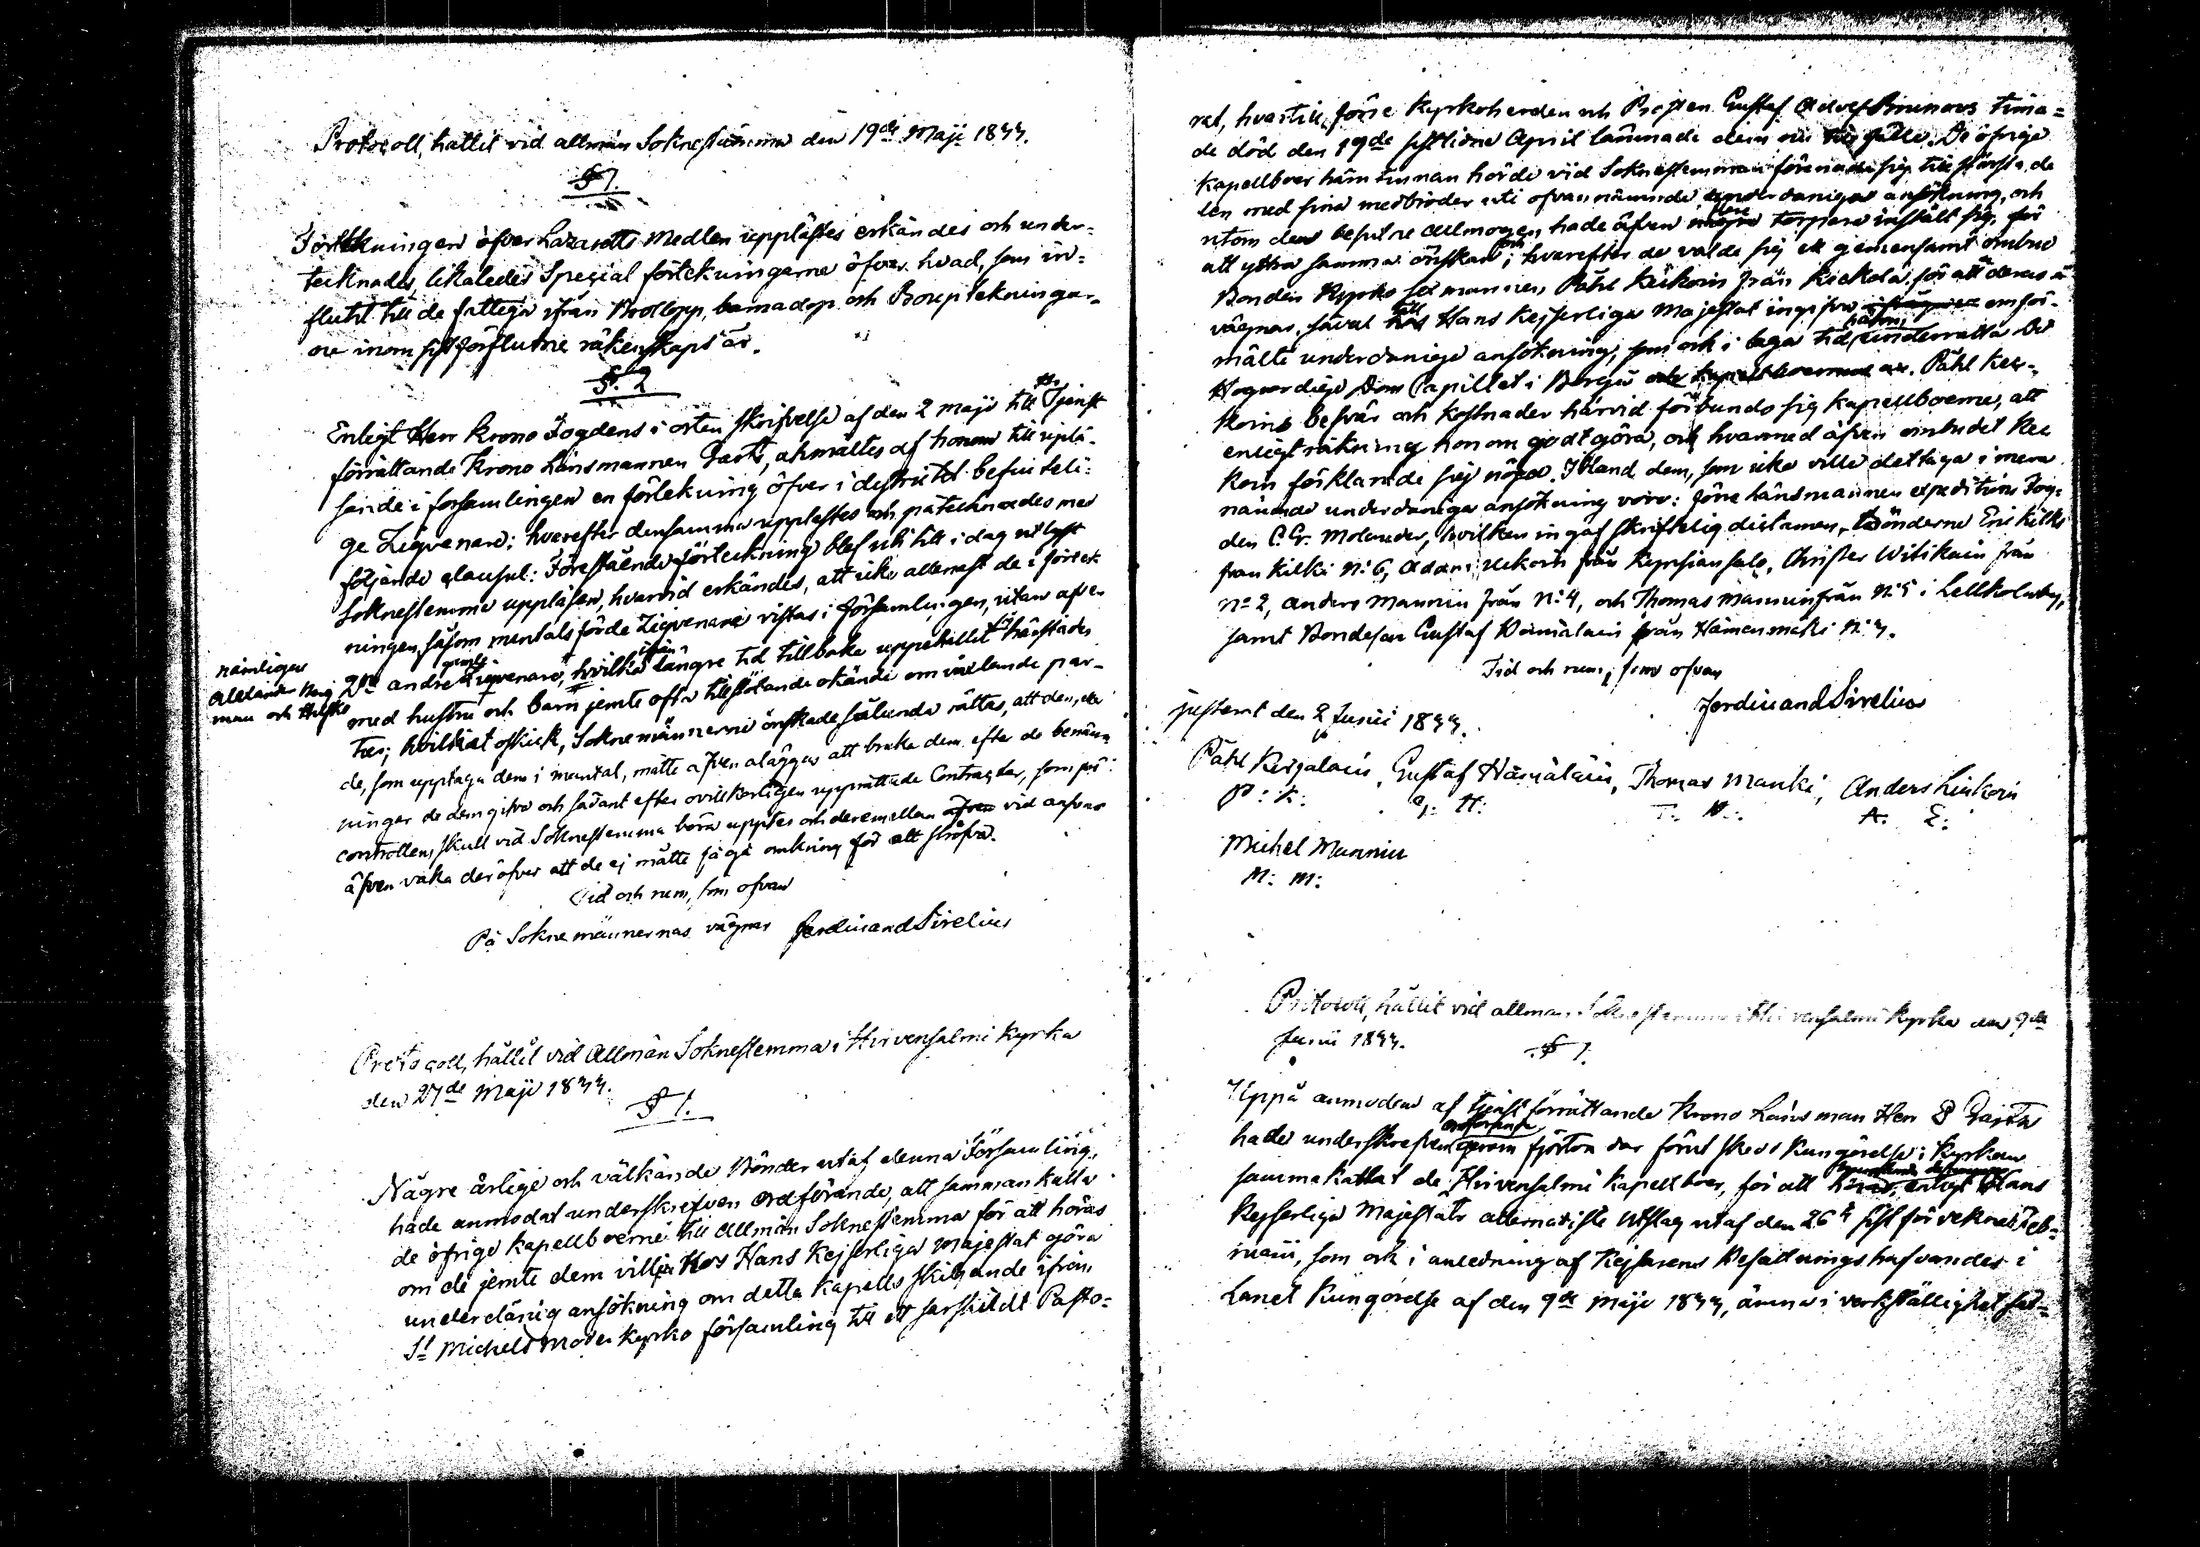 Protocoll, hållit vid allmän Soknestämma den 19de Maji 1844.
§ 1.
Förtekningen öfver Lazaretts Medlen upplästes erkändes och under-
tecknades, likaledes Special förtekningarne öfver hvad, som in-
flutit till de fattiga ifrån Bröllopp, barnadop och Bouptekningar-
ne inom sist förflutne räkenskaps år.
§. 2
Enligt Herr Krono Fogdens i orten skrifvelse af den 2 Maji till Tjenst
förrättande Krono Länsmannen Gast, afmältes af honom till
i församlingen en förtekning öfver i destrictet befinteli-
ge Ziguenare; hvarefter densamma upplästes och påtecknades med
följande clausul: Förestående förteckning blef uti till i dag utlyst
Sokneslemma uppläsen, hvarvid erkändes, att icke allenast de i förtek
ningen såsom mentalsförde Ziguenare vistas i församlingen, utan äfven
nämligen
Alexander Berg
man och
2ne andre Ziguenare, hvilka ifrån längre tid tillbaka uppehållit härstädes
med hustru och barn jemte ofta tillstötande okände omvexlande par-
tier; hvilket oskick, Soknemännerne önskade sålunda rättas, att den, eller
de, som upptaga dem i mantal, måtte äfven åläggas att bruka dem efter de benäm
ningar de dem gifva och sådant efter ovillkorligen upprättade Contracter, som för
controllens skull vid Sokneslemma böra uppteas och deremellan äfven vid ansvar
äfven vaka deröfver att de ej måtte få gå omkring för att ströfva.
Tid och rum, som ofvan
På Soknemännernas vägnar Ferdinand Sirelius
Protocoll, hållit vid Allmän Sokneslemma i Hirvensalmi Kyrka
den 27de Maji 1844.
§ 1.
Någre ärlige och välkände Bönder utaf denna Församling,
hade anmodat underskrefven ordförande, att sammankalla
de öfrige kapellboerne till allmän Sokneslemma för att höras
om de jemte dem villja hos Hans Kejserliga Majestät göra
underdånig ansökning om detta Kapells skiljande ifrån
St Michels moder kyrko församling till ett särskildt Pasto-
rat, hvartill förre Kyrkoherden och Prosten Gustaf Adolf Brunous tima-
de död den 19de sistlidne April lämnade dem nu tillfälle. De öfrige
kapellboer häm tinnan hörde vid Sokneslemman förenade sig till största de
len med sina medbröder uti ofvannämnde underdåniga ansökning, och
utom den besutne allmogen hade äfven flere torpare instält sig, för
att yttra samma önskan; hvarefter de valde sig ett gemensamt ombud
Bonden Kyrko sexmannen Påhl Keikoin från Kiekelä, för att deras å
vägnar, såväl till Hans Kejserliga Majestät ingifva omför-
mälte underdånige ansökning, som ock i laga tid härom underrätta Det
Högvördige Dom Capitlet i Borgå. Påhl Kei-
koins besvär och kostnader härvid förbundo sig kapellboerne, att
enligt räkning honom godtgöra, och hvarmed äfven ombudet Kei
koin förklarade sig nöjd. Ibland dem, som icke ville deltaga i mera
nämnde underdåniga ansökning voro: förre länsmannen expeditions Fog-
den C. G. Molander, hvilken ingaf skriftelig dictamen, bönderne Eric Kilki
från Kilki No 6, Adam Ukkoin från Kyrsiänsalo, Christer Witikain från
No 2, Anders Mannin från No 4, och Thomas Mannin från No 5 i Lellkolaby,
samt Bondeson Gustaf Hämäläin från Hämenmäki No 4.
Tid och rum, som ofvan
Ferdinand Sirelius
justerat den 2 Junii 1844.
Påhl Kirjalain, Gustaf Hämäläin, Thomas Manki, Anders Liukoin
P: K: G: H: T. M: A. L:
Michel Mannin
M: M:
Protocoll, hållit vid allman Sokneslemma i Hirvensalmi Kyrka den 9de
Junii 1844.
§ 1.
Uppå anmodan af tjenstförrättande Krono Länsman Herr Gast
hade underskrefven ordförande genom fjorton dar förut skedd Kungörelse i Kyrkan
sammakallat de Hirvensalmi Kapellboer, för att Hans
Kejserliga Majestäts allernådigste utslag utaf den 26 sist förvekne Feb-
ruarii, som ock i anledning af Kejsarens Befallningshafvandes i
Länet Kungörelse af den 9de Maji 1844, ämna i verkställighet sät-